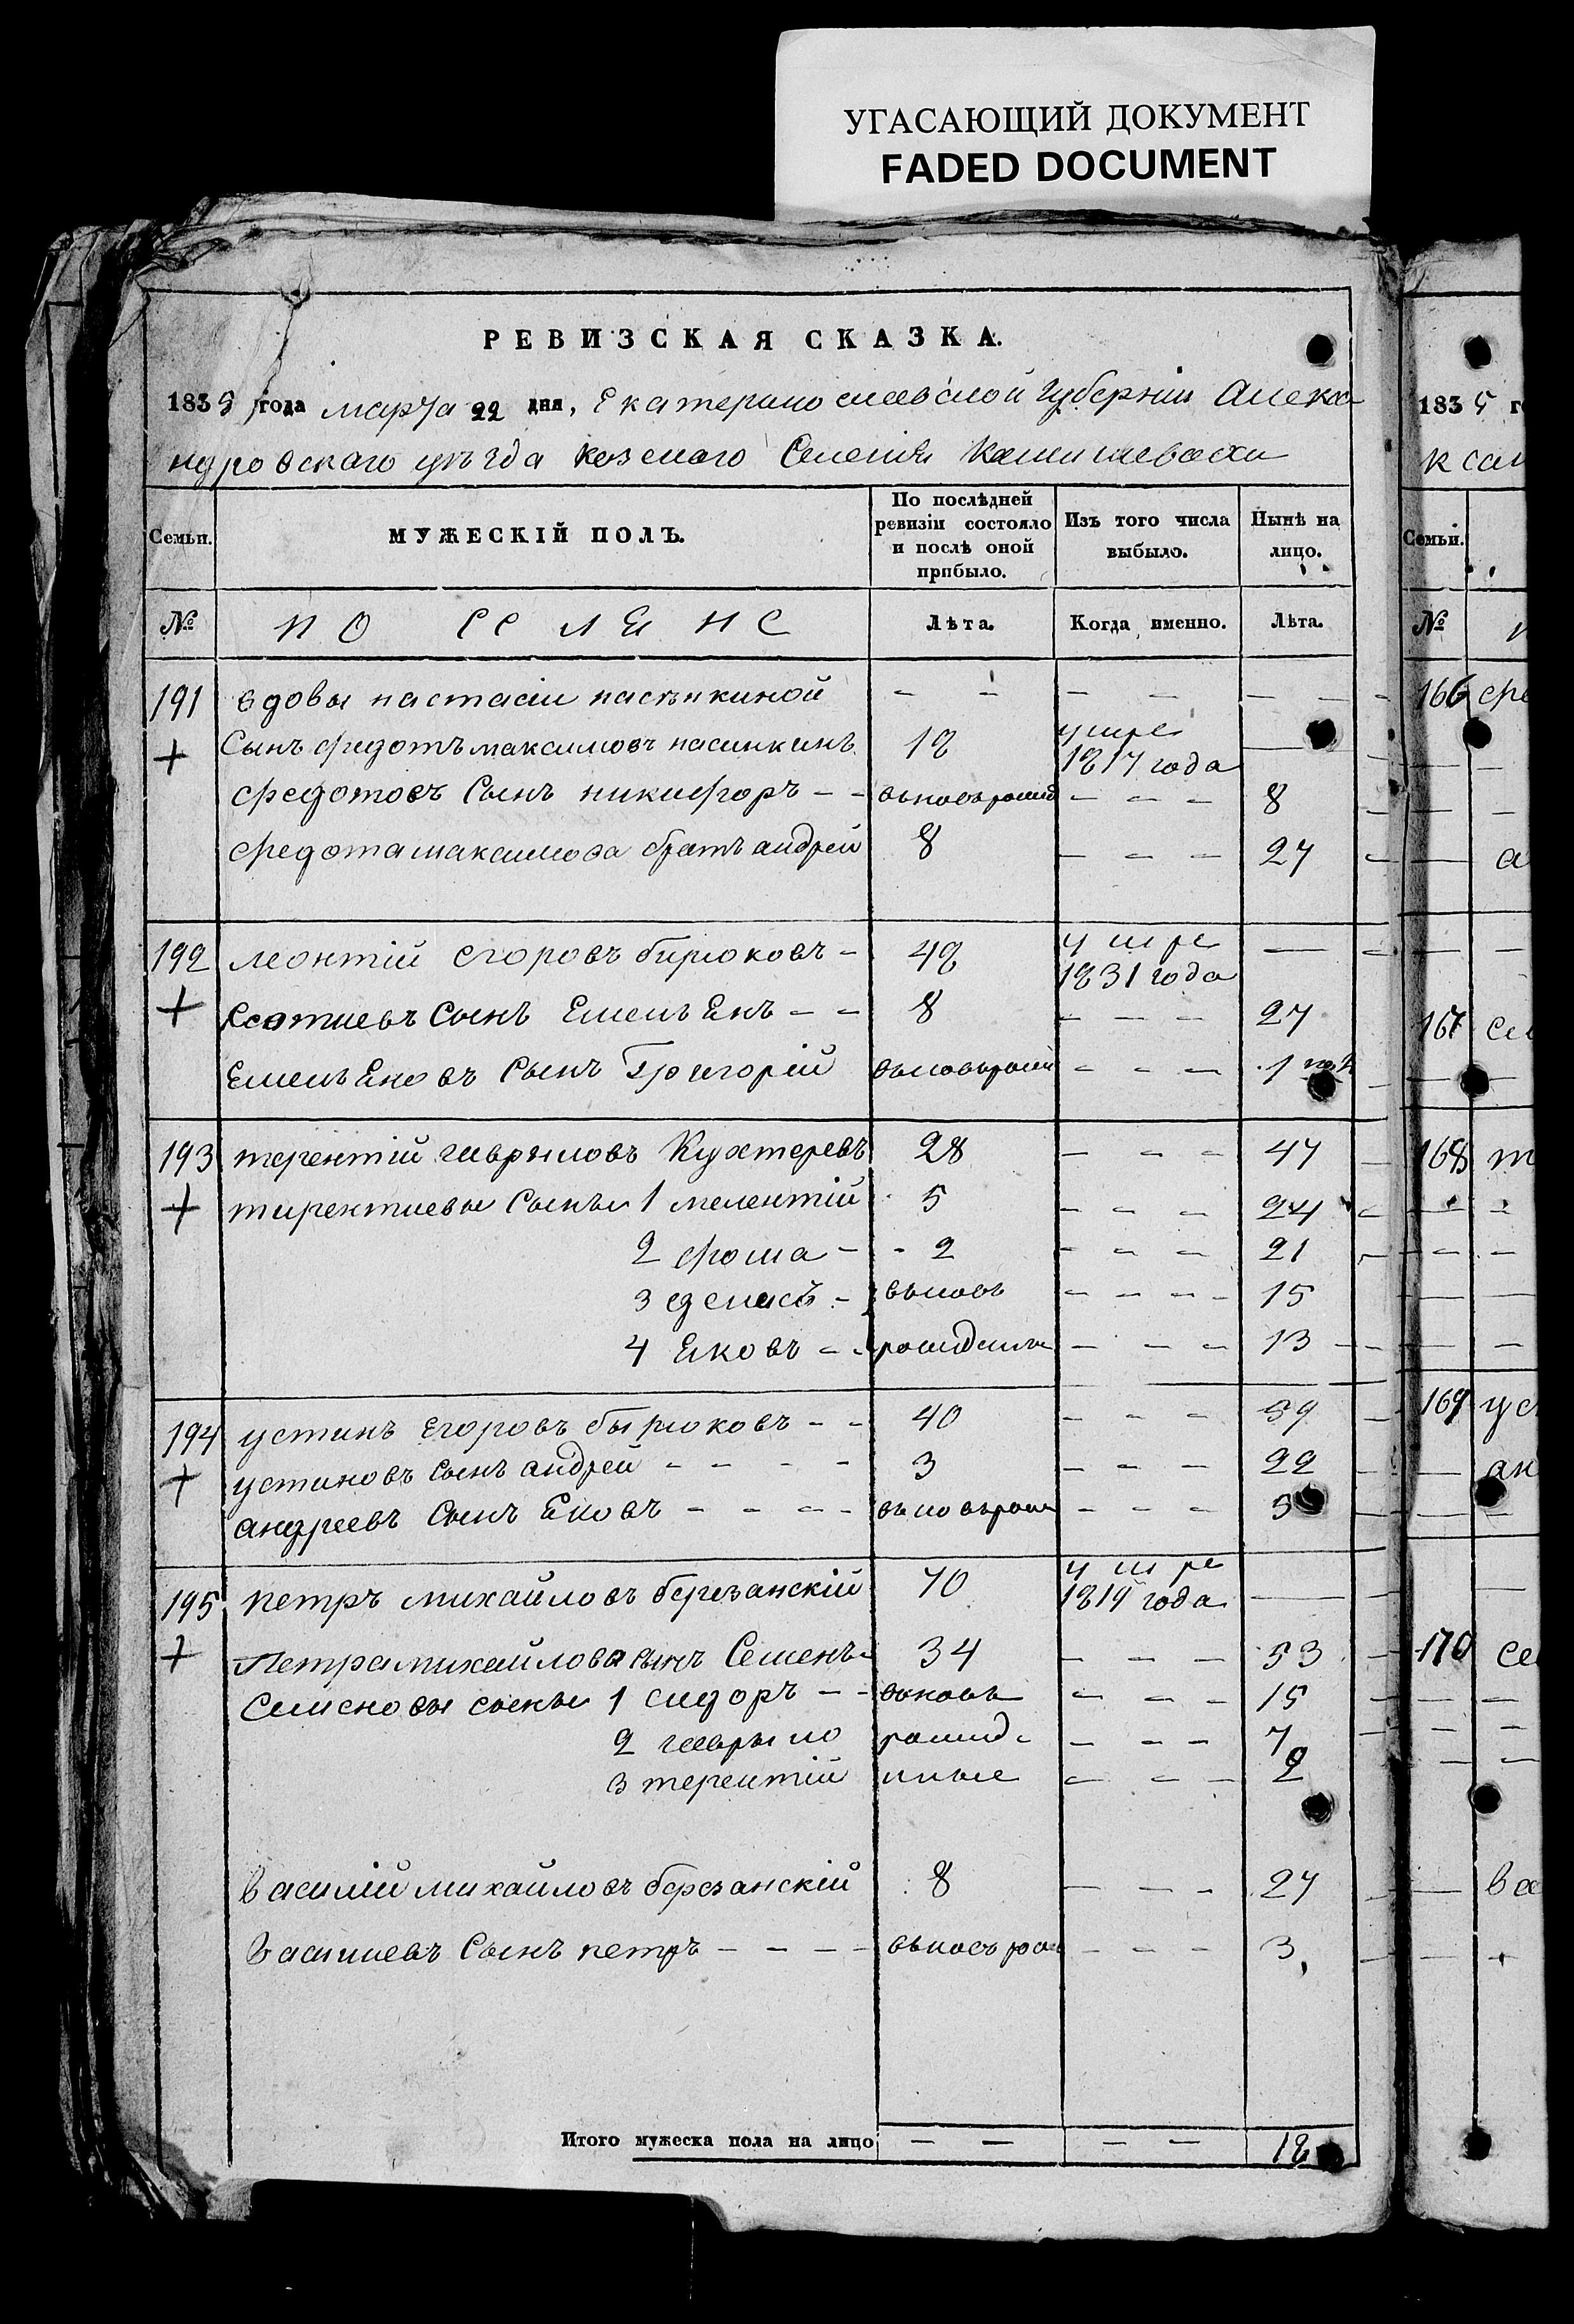 УГАСАЮЩИЙ ДОКУМЕНТ
FADED DOCUMENT
РЕВИЗСКАЯ СКАЗКА.
1835 года марта 22 дня, Екатеринославской губернии Алекса
ндровскаго уѣзда казенаго Селения Камишевахи
Семьи.
МУЖЕСКІЙ ПОЛЪ.
По послѣдней ревизіи состояло и послѣ оной прибыло.
Изъ того числа выбыло.
Нынѣ на лицо.
№
Лѣта.
Когда именно.
Лѣта.
191 вдовы настасіи пасѣнкиной - - - - - -
+ Сынъ федотъ максимовъ пасинкинъ 18 умре 1817 года —
федотовъ Сынъ никифоръ - - вьновьрожд - - - 8
федота максимова братъ андрей 8 - - - 27
192 леонтій егоровъ бирюковъ - 48 умре 1831 года —
+ Сынъ Емельенъ - - 8 - - - 27
Емельеновъ Сынъ Григорій - - - 1
193 терентій гаврыловъ Кухтеревъ 28 - - - 47
+ тирентиевы Сыны 1 мелентій 5 - - - 24
2 фома - - 2 - - - 21
3 - вьновь - - - - 15
4 Яковъ - - рожденые - - - 13
194 устинъ Егоровъ бырюковъ - - 40 - - - 59
+ устиновъ сынъ андрей - - - - 3 - - - 22
андреевъ Сынъ Яковъ - - - - вьновьрож - - - 3
195 петръ михайловъ березанскій 70 умре 1819 года —
+ Петра михайлова сынъ Семенъ 34 - - - 53
Семеновы сыны 1 сидоръ - - вьновь - - - 15
2 гаврыло рожде - - - 7
3 терентій нные - - - 2
василій михайловъ березанскій 8 - - - 27
Василиевъ Сынъ петръ - - - - вьновьрож - - - 3
Итого мужеска пола на лицо - - - - 18
1835 г
Семьи.
№
166
а
167
168
169 уст
ан
170 се
ва